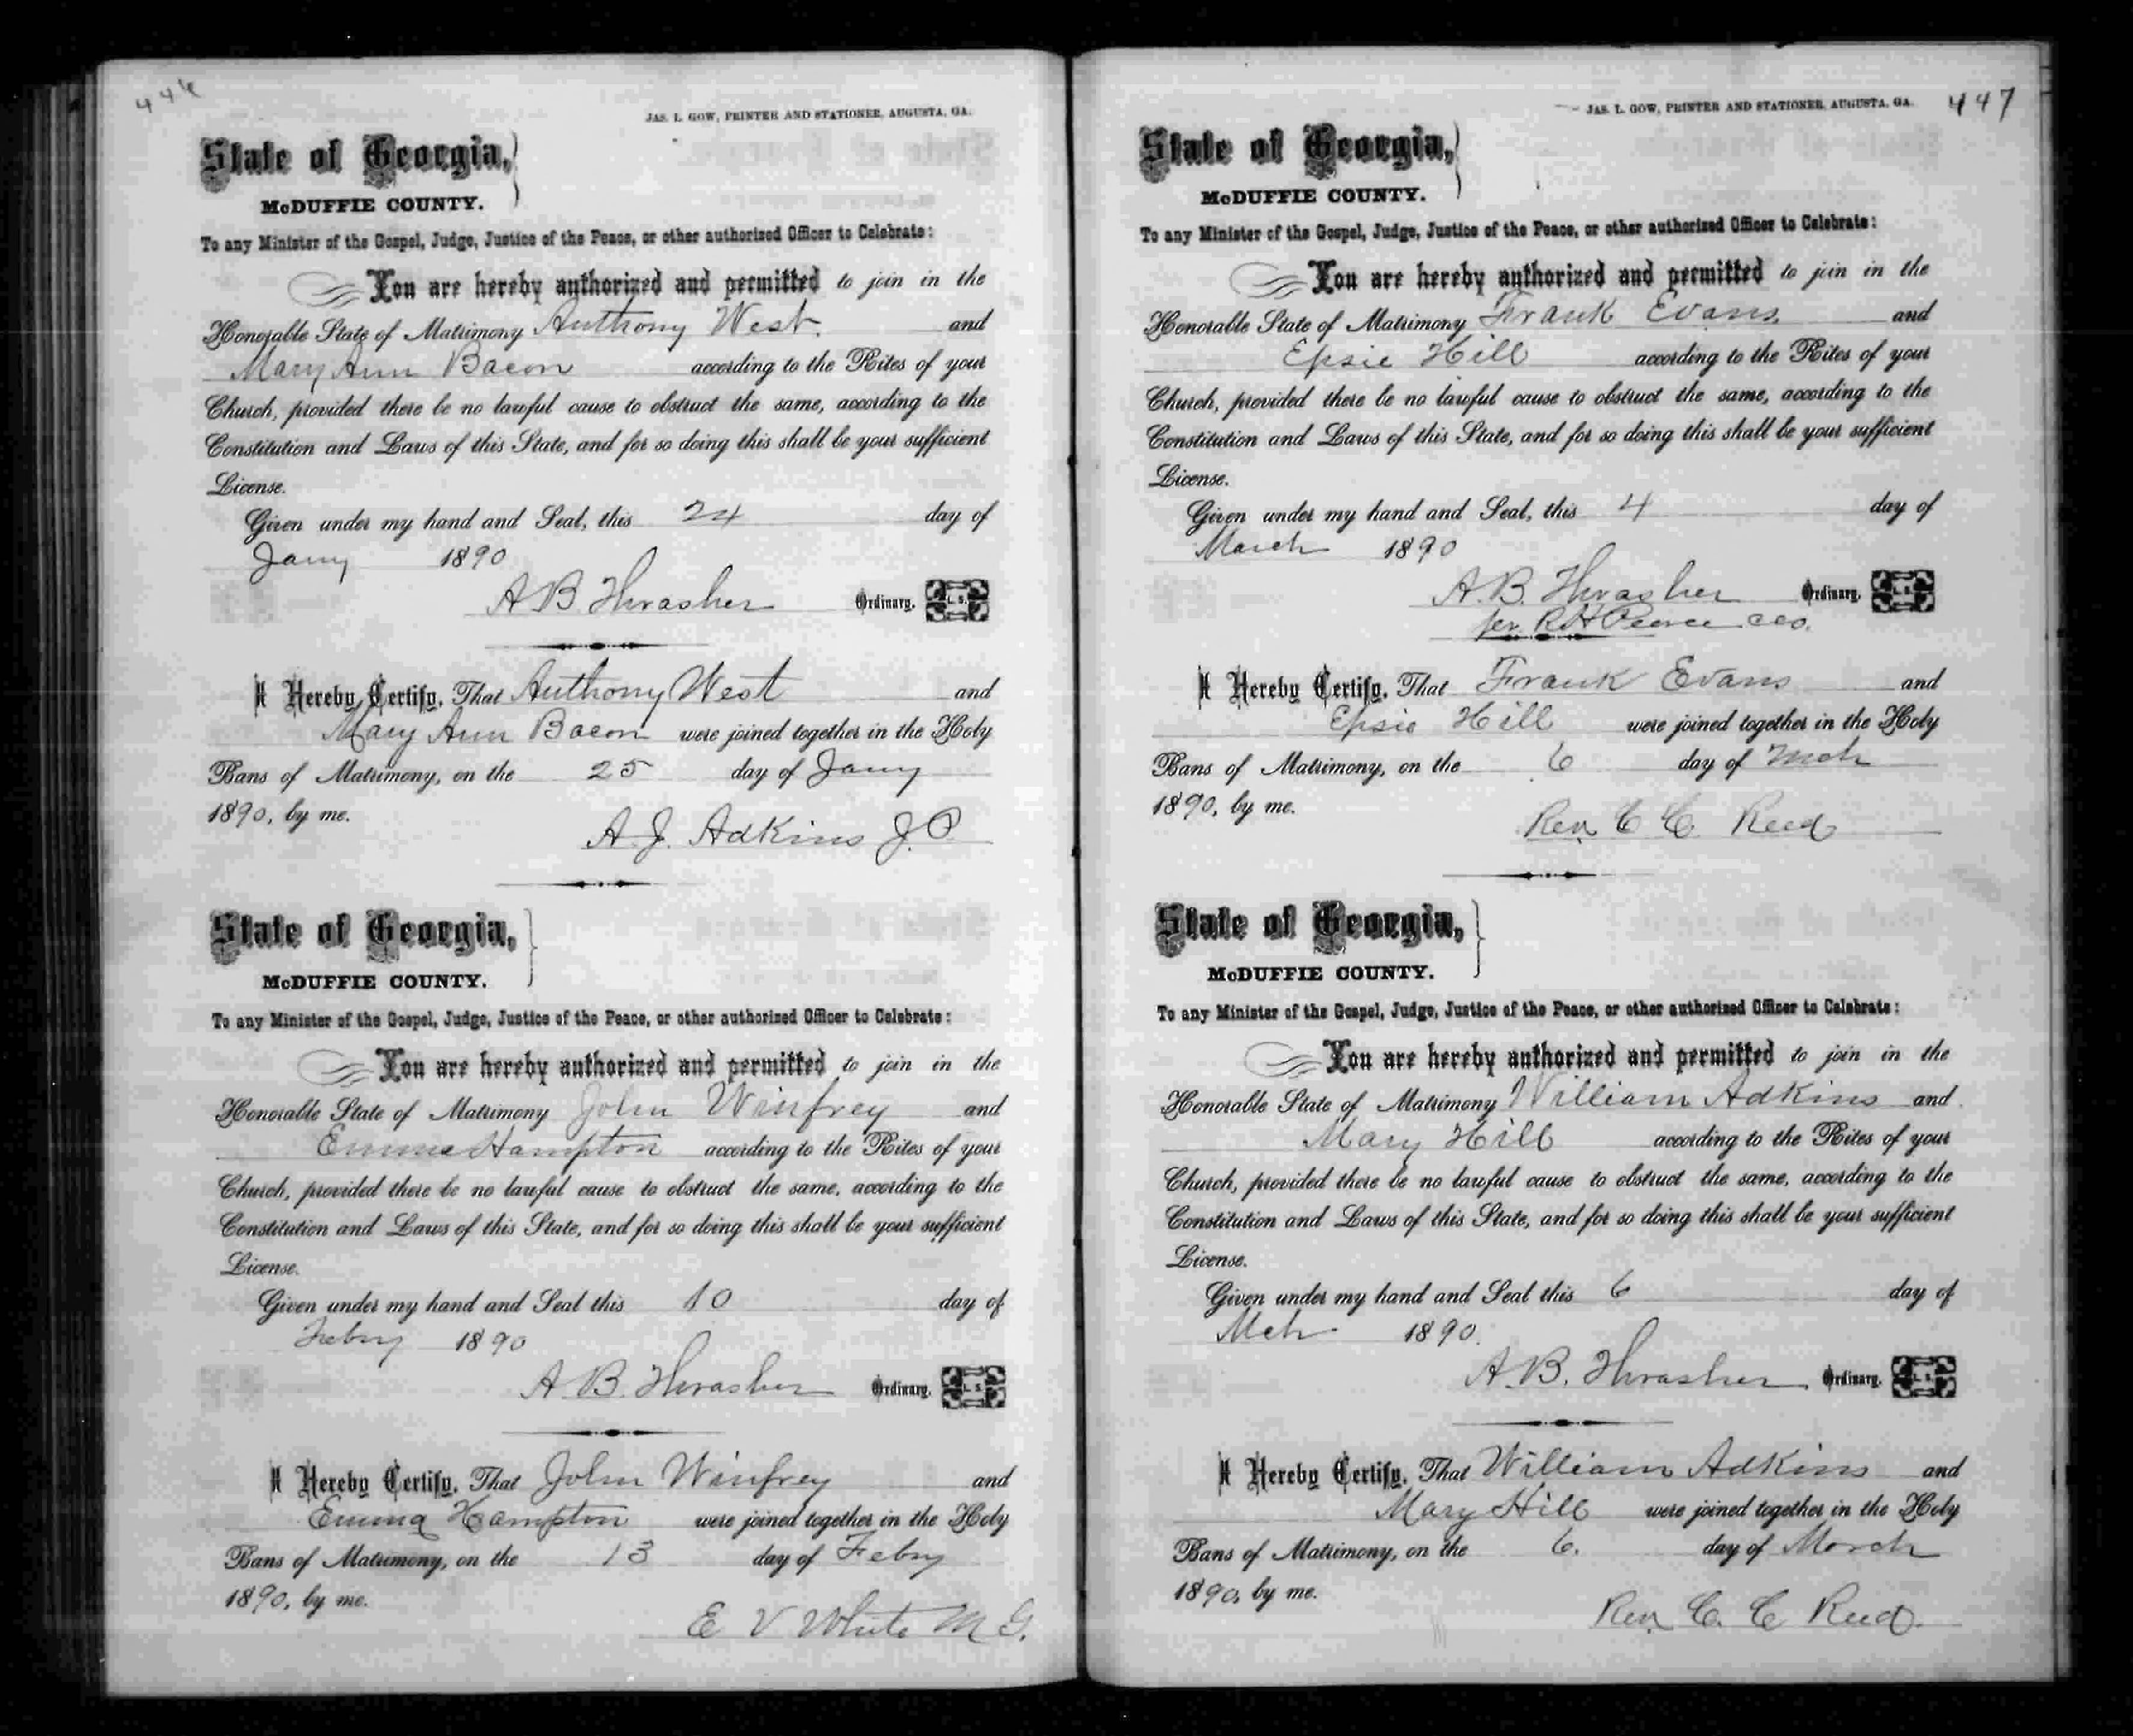 446
JAS. L. GOW, PRINTER AND STATIONER, AUGUSTA, GA.
State of Georgia,
McDUFFIE COUNTY.
To any Minister of the Gospel, Judge, Justice of the Peace, or other authorized Officer to Celebrate:
You are hereby authorized and permitted to join in the
Honorable State of Matrimony Anthony West and
Mary Ann Bacon according to the Rites of your
Church, provided there be no lawful cause to obstruct the same, according to the
Constitution and Laws of this State, and for so doing this shall be your sufficient
License.
Given under my hand and Seal, this 24 day of
Jany 1890
A B Thrasher Ordinary. L. S.
I Hereby Certify, That Anthony West and
Mary Ann Bacon were joined together in the Holy
Bans of Matrimony, on the 25 day of Jany
1890, by me.
A. J. Adkins J. P.
State of Georgia,
McDUFFIE COUNTY.
To any Minister of the Gospel, Judge, Justice of the Peace, or other authorized Officer to Celebrate:
You are hereby authorized and permitted to join in the
Honorable State of Matrimony John Winfrey and
Emma Hampton according to the Rites of your
Church, provided there be no lawful cause to obstruct the same, according to the
Constitution and Laws of this State, and for so doing this shall be your sufficient
License.
Given under my hand and Seal this 10 day of
Febry 1890
A B. Thrasher Ordinary. L. S.
I Hereby Certify, That John Winfrey and
Emma Hampton were joined together in the Holy
Bans of Matrimony, on the 13 day of Febry
1890, by me.
E V White M G.
JAS. L. GOW, PRINTER AND STATIONER, AUGUSTA, GA. 447
State of Georgia,
McDUFFIE COUNTY.
To any Minister of the Gospel, Judge, Justice of the Peace, or other authorized Officer to Celebrate:
You are hereby authorized and permitted to join in the
Honorable State of Matrimony Frank Evans and
Epsie Hill according to the Rites of your
Church, provided there be no lawful cause to obstruct the same, according to the
Constitution and Laws of this State, and for so doing this shall be your sufficient
License.
Given under my hand and Seal, this 4 day of
March 1890
A. B. Thrasher Ordinary. L. S.
per R H Pearce
I Hereby Certify, That Frank Evans and
Epsie Hill were joined together in the Holy
Bans of Matrimony, on the 6 day of Mch
1890, by me.
Rev. C C. Reed
State of Georgia,
McDUFFIE COUNTY.
To any Minister of the Gospel, Judge, Justice of the Peace, or other authorized Officer to Celebrate:
You are hereby authorized and permitted to join in the
Honorable State of Matrimony William Adkins and
Mary Hill according to the Rites of your
Church, provided there be no lawful cause to obstruct the same, according to the
Constitution and Laws of this State, and for so doing this shall be your sufficient
License.
Given under my hand and Seal this 6 day of
Mch 1890.
A. B. Thrasher Ordinary. L. S.
I Hereby Certify, That William Adkins and
Mary Hill were joined together in the Holy
Bans of Matrimony, on the 6. day of March
1890, by me.
Rev. C. C Reed.